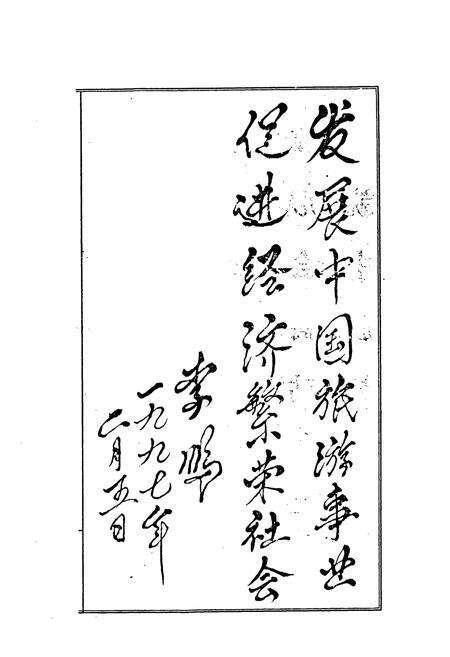 发展中国旅游事业
促进经济繁荣社会
李鹏
一九九七年
二月五日